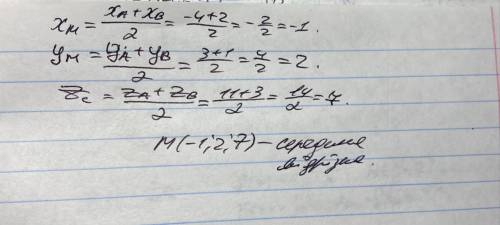 x_M = (x_A + x_B)/2 = (-4+2)/2 = -2/2 = -1.
y_M = (y_A + y_B)/2 = (3+1)/2 = 4/2 = 2.
z_c = (z_A + z_B)/2 = (11+3)/2 = 14/2 = 7.
M(-1; 2; 7) – середина
відрізка.